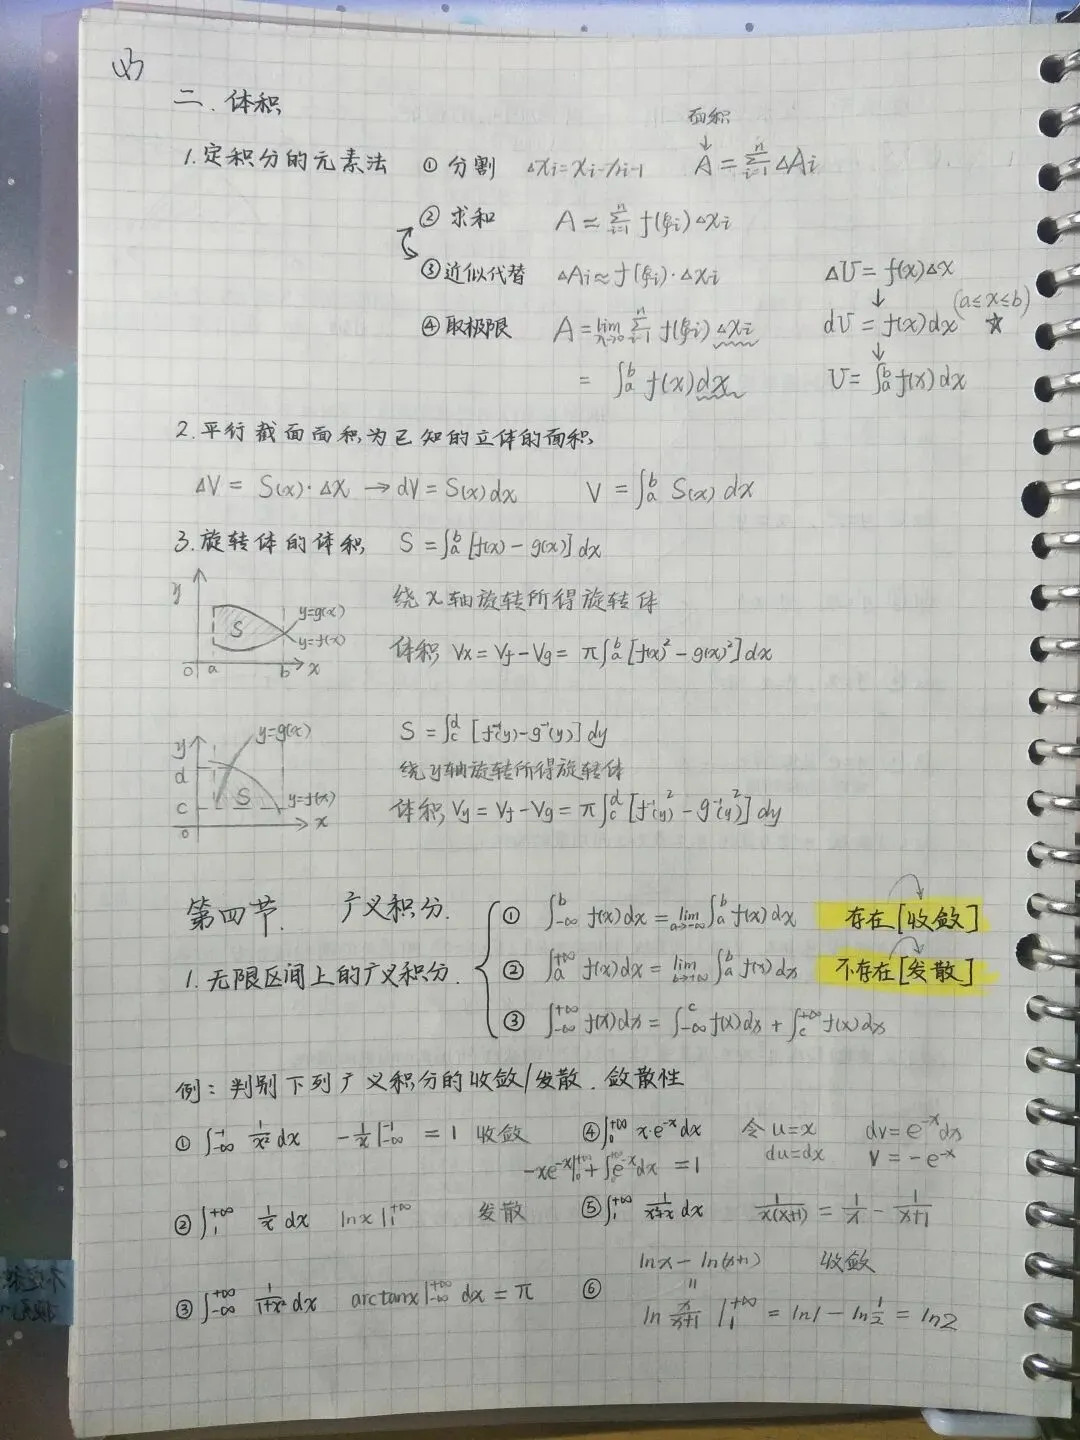 二. 体积
面积
↓
1. 定积分的元素法 ① 分割 Δxi=xi-xi-1 A=∑_{i=1}^{n}ΔAi
② 求和 A≈∑_{i=1}^{n} f(ξi)Δxi
③ 近似代替 ΔAi≈f(ξi)·Δxi ΔU=f(x)Δx
↓ (a≤x≤b)
④ 取极限 A=lim_{λ→0}∑_{i=1}^{n} f(ξi)Δxi dU=f(x)dx ☆
↓
=∫_a^b f(x)dx U=∫_a^b f(x)dx
2. 平行截面面积为已知的立体的面积
ΔV=S(x)·ΔX →dV=S(x)dx V=∫_a^b S(x)dx
3. 旋转体的体积 S=∫_a^b [f(x)-g(x)]dx
y
绕x轴旋转所得旋转体
S y=g(x)
y=f(x)
体积 Vx=Vf-Vg=π∫_a^b [f(x)²-g(x)²]dx
0 a b x
y=g(x) S=∫_c^d [f⁻¹(y)-g⁻¹(y)]dy
y
d 绕y轴旋转所得旋转体
c S y=f(x) 体积 Vy=Vf-Vg=π∫_c^d [f⁻¹(y)²-g⁻¹(y)²]dy
0 x
第四节. 广义积分.
① ∫_{-∞}^b f(x)dx=lim_{a→-∞}∫_a^b f(x)dx 存在[收敛]
1. 无限区间上的广义积分. ② ∫_a^{+∞} f(x)dx=lim_{b→+∞}∫_a^b f(x)dx 不存在[发散]
③ ∫_{-∞}^{+∞} f(x)dx=∫_{-∞}^c f(x)dx+∫_c^{+∞} f(x)dx
例: 判别下列广义积分的收敛/发散. 敛散性
① ∫_{-∞}^{-1} 1/x² dx -1/x|_{-∞}^{-1}=1 收敛 ④ ∫_0^{+∞} x·e^{-x}dx 令u=x dv=e^{-x}dx
du=dx v=-e^{-x}
-xe^{-x}|_0^{+∞}+∫_0^{+∞}e^{-x}dx=1
② ∫_1^{+∞} 1/x dx lnx|_1^{+∞} 发散 ⑤ ∫_1^{+∞} 1/(x²+x) dx 1/(x(x+1))=1/x-1/(x+1)
lnx-ln(x+1) 收敛
③ ∫_{-∞}^{+∞} 1/(1+x²) dx arctanx|_{-∞}^{+∞} dx=π ⑥ ||
ln x/(x+1) |_1^{+∞}=ln1-ln1/2=ln2